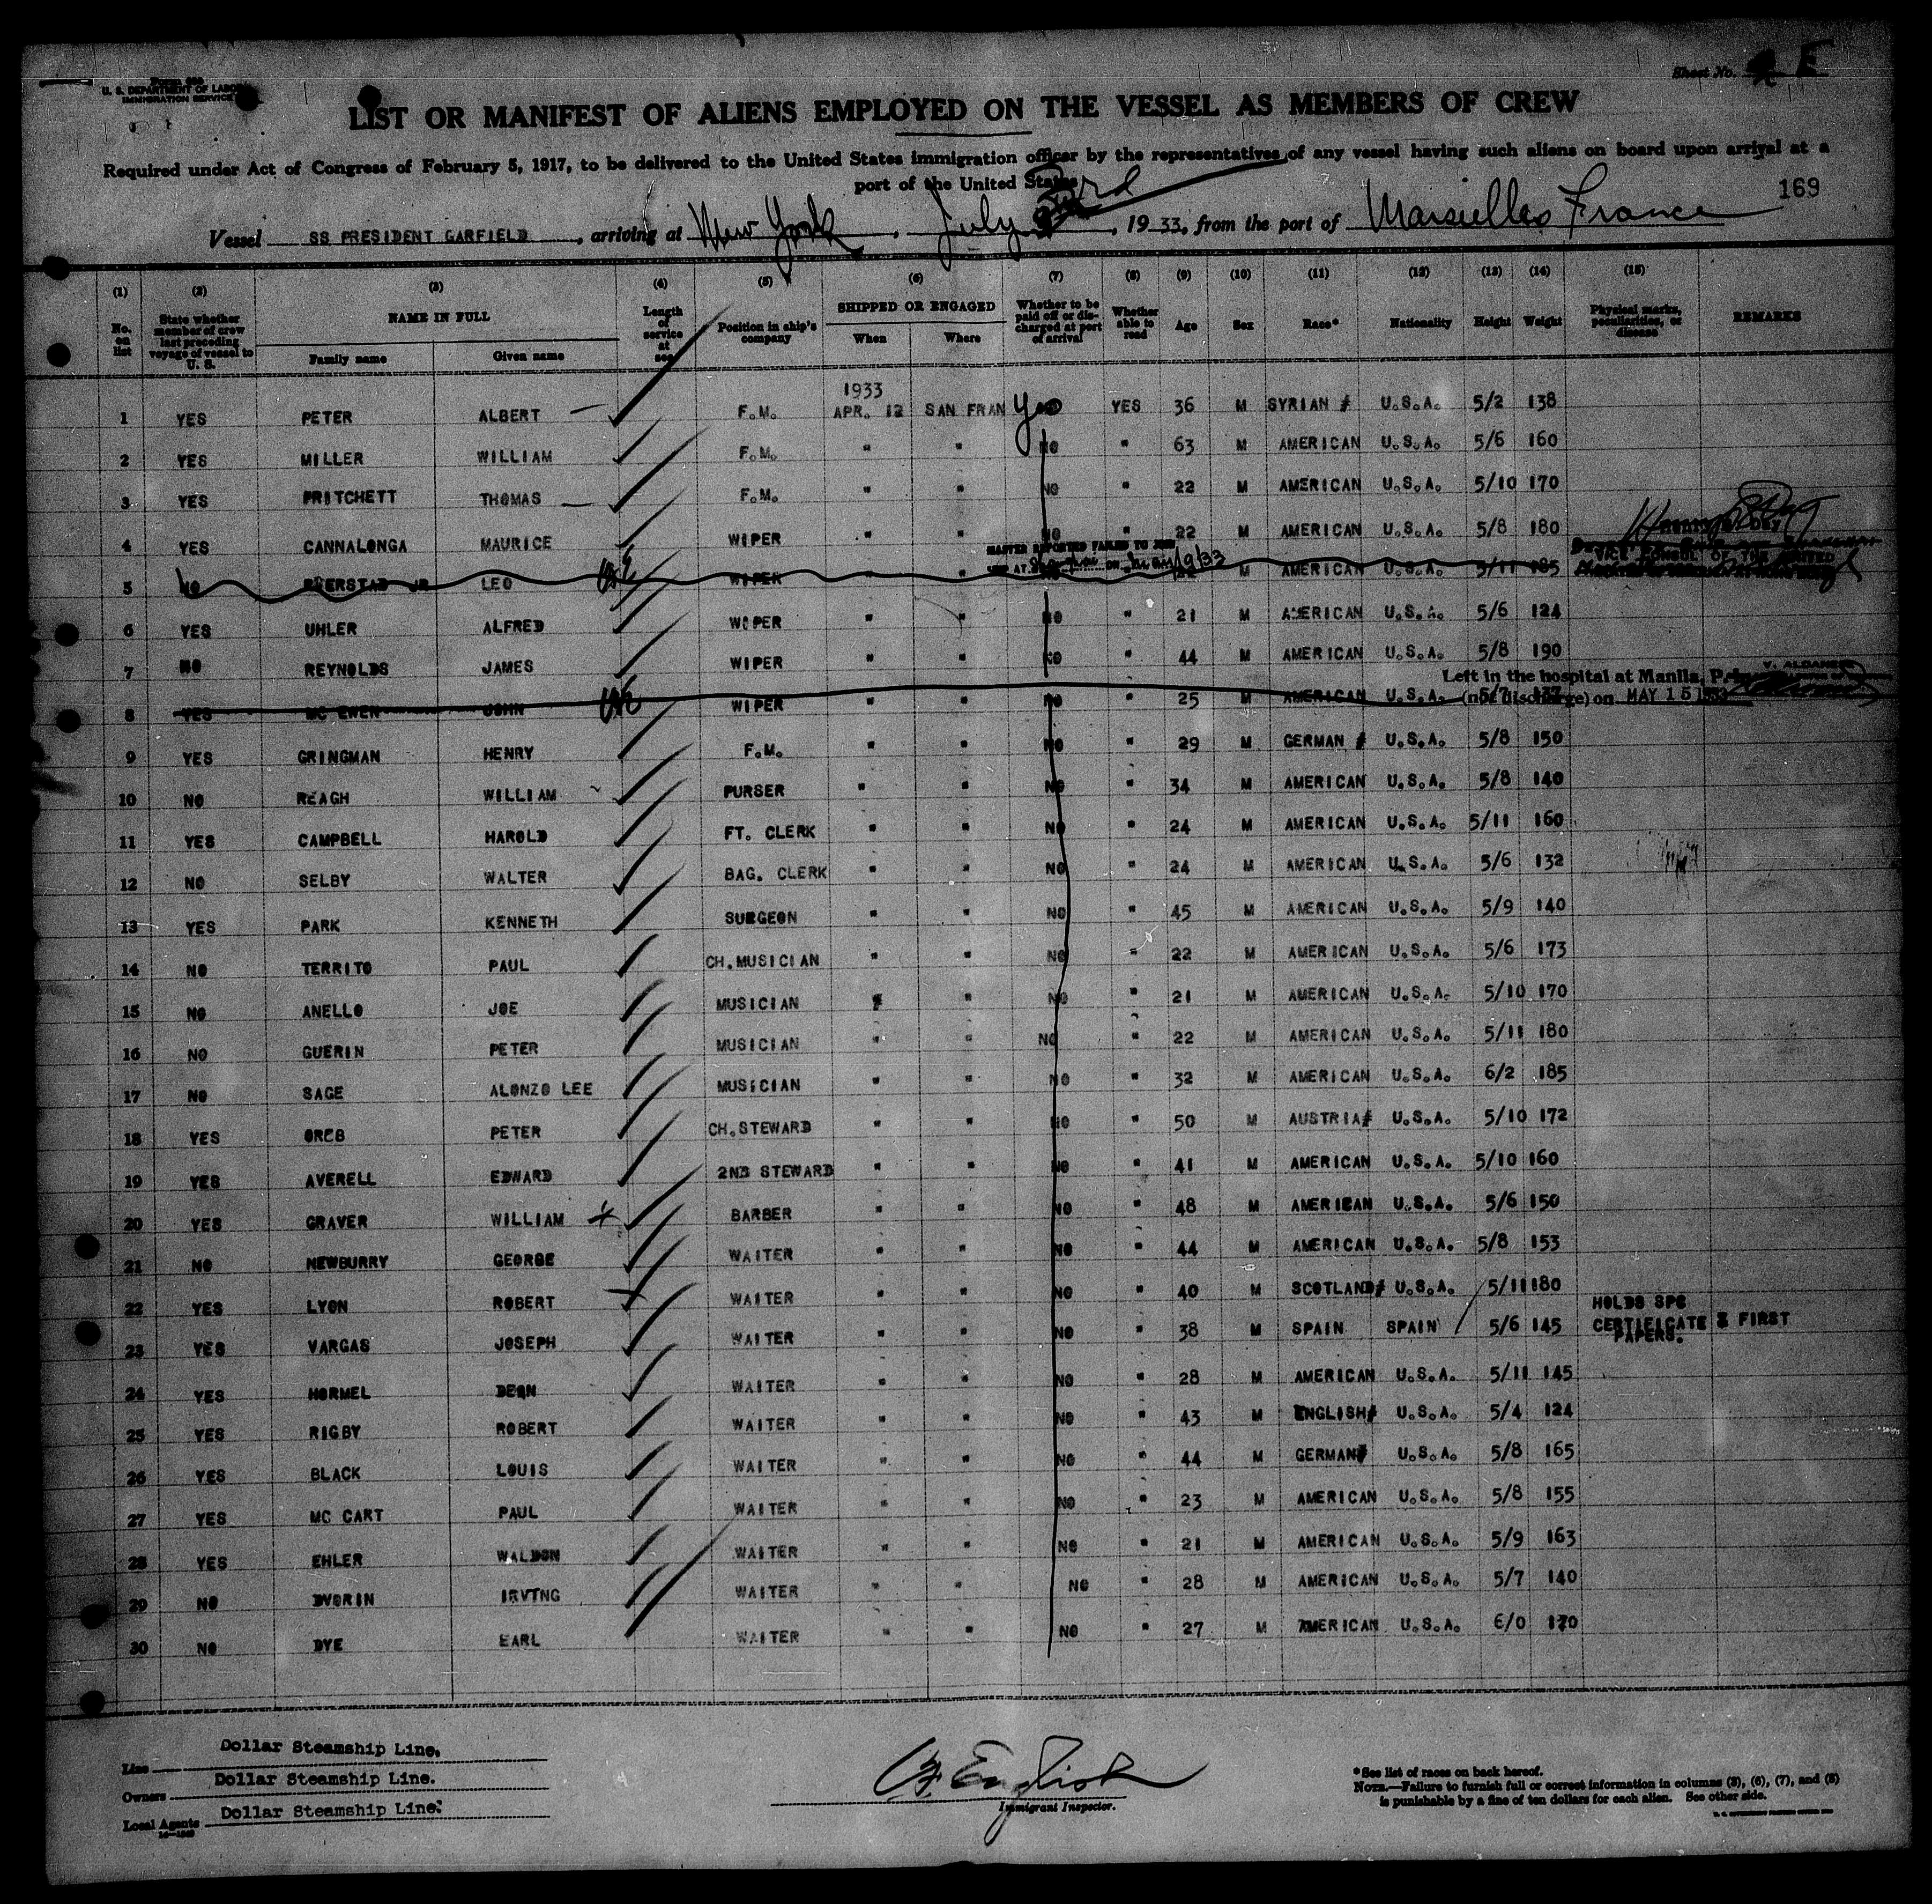 Form 689
U. S. DEPARTMENT OF LABOR
IMMIGRATION SERVICE
Sheet No. E
LIST OR MANIFEST OF ALIENS EMPLOYED ON THE VESSEL AS MEMBERS OF CREW
Required under Act of Congress of February 5, 1917, to be delivered to the United States immigration officer by the representatives of any vessel having such aliens on board upon arrival at a
port of the United States
169
Vessel SS PRESIDENT GARFIELD, arriving at New York, July 3rd, 1933, from the port of Marsielles France
(1) (2) (3) (4) (5) (6) (7) (8) (9) (10) (11) (12) (13) (14) (15)
No. on list State whether member of crew last preceding voyage of vessel to U. S. NAME IN FULL Family name Given name Length of service at sea Position in ship's company SHIPPED OR ENGAGED When Where Whether to be paid off or discharged at port of arrival Whether able to read Age Sex Race* Nationality Height Weight Physical marks, peculiarities, or disease REMARKS
1933
1 YES PETER ALBERT F.M. APR. 12 SAN FRAN Yes YES 36 M SYRIAN # U.S.A. 5/2 138
2 YES MILLER WILLIAM F.M. " " NO " 63 M AMERICAN U.S.A. 5/6 160
3 YES PRITCHETT THOMAS F.M. " " NO " 22 M AMERICAN U.S.A. 5/10 170
4 YES CANNALONGA MAURICE WIPER " " NO " 22 M AMERICAN U.S.A. 5/8 180
MASTER REPORTED FAILED TO JOIN
VICE CONSUL OF THE UNITED
5 NO JR LEO WIPER " NO 22 M AMERICAN U.S.A. 5/11 185
6 YES UHLER ALFRED WIPER " " NO " 21 M AMERICAN U.S.A. 5/6 124
7 NO REYNOLDS JAMES WIPER " " NO " 44 M AMERICAN U.S.A. 5/8 190
V. ALDANESE
Left in the hospital at Manila,
8 YES MC EWEN JOHN WIPER " " NO " 25 M AMERICAN U.S.A. 5/7 (not discharge) on MAY 15 1933
9 YES GRINGMAN HENRY F.M. " " NO " 29 M GERMAN # U.S.A. 5/8 150
10 NO REAGH WILLIAM PURSER " " NO " 34 M AMERICAN U.S.A. 5/8 140
11 YES CAMPBELL HAROLD FT. CLERK " " NO " 24 M AMERICAN U.S.A. 5/11 160
12 NO SELBY WALTER BAG. CLERK " " NO " 24 M AMERICAN U.S.A. 5/6 132
13 YES PARK KENNETH SURGEON " " NO " 45 M AMERICAN U.S.A. 5/9 140
14 NO TERRITO PAUL CH.MUSICIAN " " NO " 22 M AMERICAN U.S.A. 5/6 173
15 NO ANELLO JOE MUSICIAN " " NO " 21 M AMERICAN U.S.A. 5/10 170
16 NO GUERIN PETER MUSICIAN " " NO " 22 M AMERICAN U.S.A. 5/11 180
17 NO SAGE ALONZO LEE MUSICIAN " " NO " 32 M AMERICAN U.S.A. 6/2 185
18 YES OREB PETER CH.STEWARD " " NO " 50 M AUSTRIA# U.S.A. 5/10 172
19 YES AVERELL EDWARD 2ND STEWARD " " NO " 41 M AMERICAN U.S.A. 5/10 160
20 YES GRAVER WILLIAM BARBER " " NO " 48 M AMERICAN U.S.A. 5/6 150
21 NO NEWBURRY GEORGE WAITER " " NO " 44 M AMERICAN U.S.A. 5/8 153
22 YES LYON ROBERT WAITER " " NO " 40 M SCOTLAND# U.S.A. 5/11 180
23 YES VARGAS JOSEPH WAITER " " NO " 38 M SPAIN SPAIN 5/6 145 HOLDS SPC CERTIFICATE & FIRST PAPERS.
24 YES HORMEL DEON WAITER " " NO " 28 M AMERICAN U.S.A. 5/11 145
25 YES RIGBY ROBERT WAITER " " NO " 43 M ENGLISH# U.S.A. 5/4 124
26 YES BLACK LOUIS WAITER " " NO " 44 M GERMAN# U.S.A. 5/8 165
27 YES MC CART PAUL WAITER " " NO " 23 M AMERICAN U.S.A. 5/8 155
28 YES EHLER WALDON WAITER " " NO " 21 M AMERICAN U.S.A. 5/9 163
29 NO DVORIN IRVING WAITER " " NO " 28 M AMERICAN U.S.A. 5/7 140
30 NO DYE EARL WAITER " " NO " 27 M AMERICAN U.S.A. 6/0 170
Line Dollar Steamship Line.
Owners Dollar Steamship Line.
Local Agents Dollar Steamship Line.
English
Immigrant Inspector.
*See list of races on back hereof.
NOTE.—Failure to furnish full or correct information in columns (3), (6), (7), and (8)
is punishable by a fine of ten dollars for each alien. See other side.